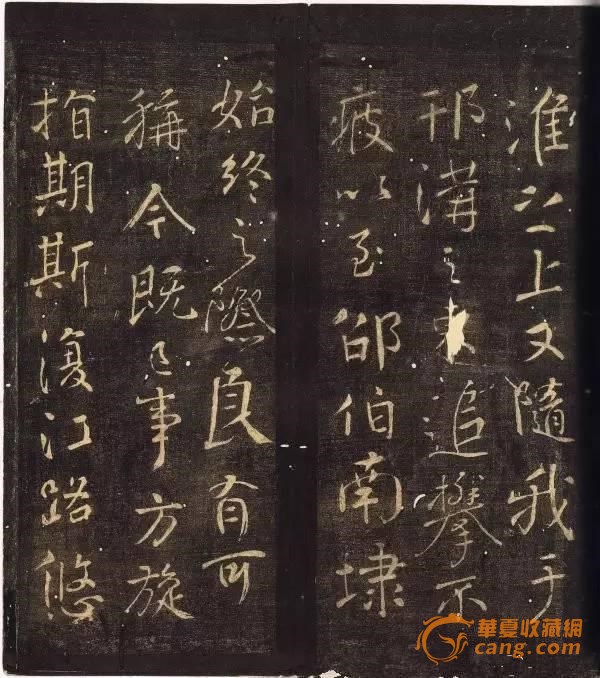 淮之上又隨我于
邗溝之東追攀不
疲以至邵伯南埭
始終之際良有可
稱今既已事方旋
指期斯復江路悠
華夏收藏網
cang.com